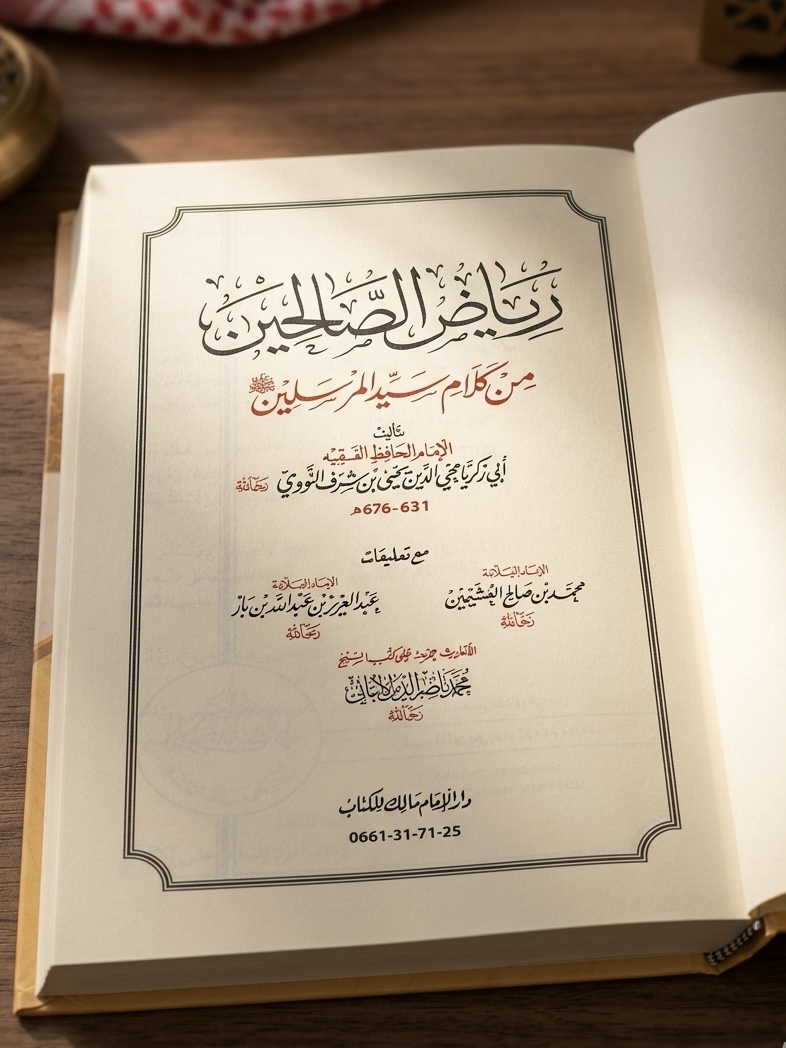 رِيَاضُ الصَّالِحِيْن
مِنْ كَلَامِ سَيِّدِ المُرْسَلِين ﷺ
تأليف
الإمَام الحَافِظ الفَقِيه
أبي زكريَّا محيي الدِّين يَحْيَى بْن شَرَف النَّوَويّ رَحِمَهُ اللَّه
631-676هـ
مع تعليقات
الإمام العلامة
محمَّد بْن صَالح العُثَيْمِين
رَحِمَهُ اللَّه
الإمام العلامة
عَبْد العَزيز بْن عَبْد اللَّه بْن بَاز
رَحِمَهُ اللَّه
الأحاديث على كتب الشيخ
محمَّد نَاصِر الدِّين الألبَاني
رَحِمَهُ اللَّه
دار الإمَام مَالِك لِلكتَابُ
0661-31-71-25